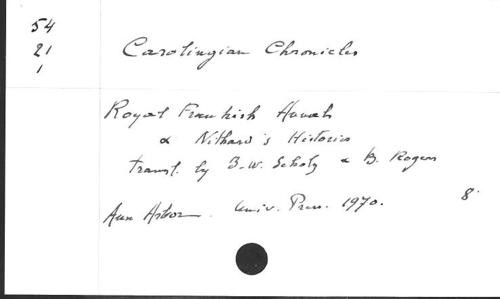 54
21
1
Carolingian Chronicles
Royal Frankish Annals
& Nithard's Histories
transl. by B.-W. Scholz & B. Rogers
Ann Arbor. Univ. Press. 1970. 8°